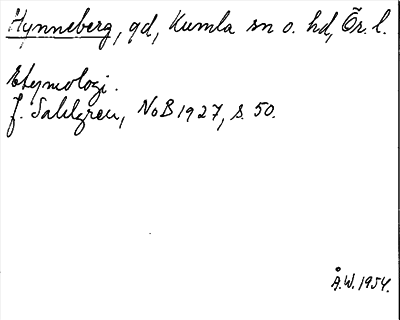 Hynneberg, gd, Kumla sn o. hd, Ör. l.
Etymologi.
J. Sahlgren, NoB 1927, s. 50.
Å.W. 1954.